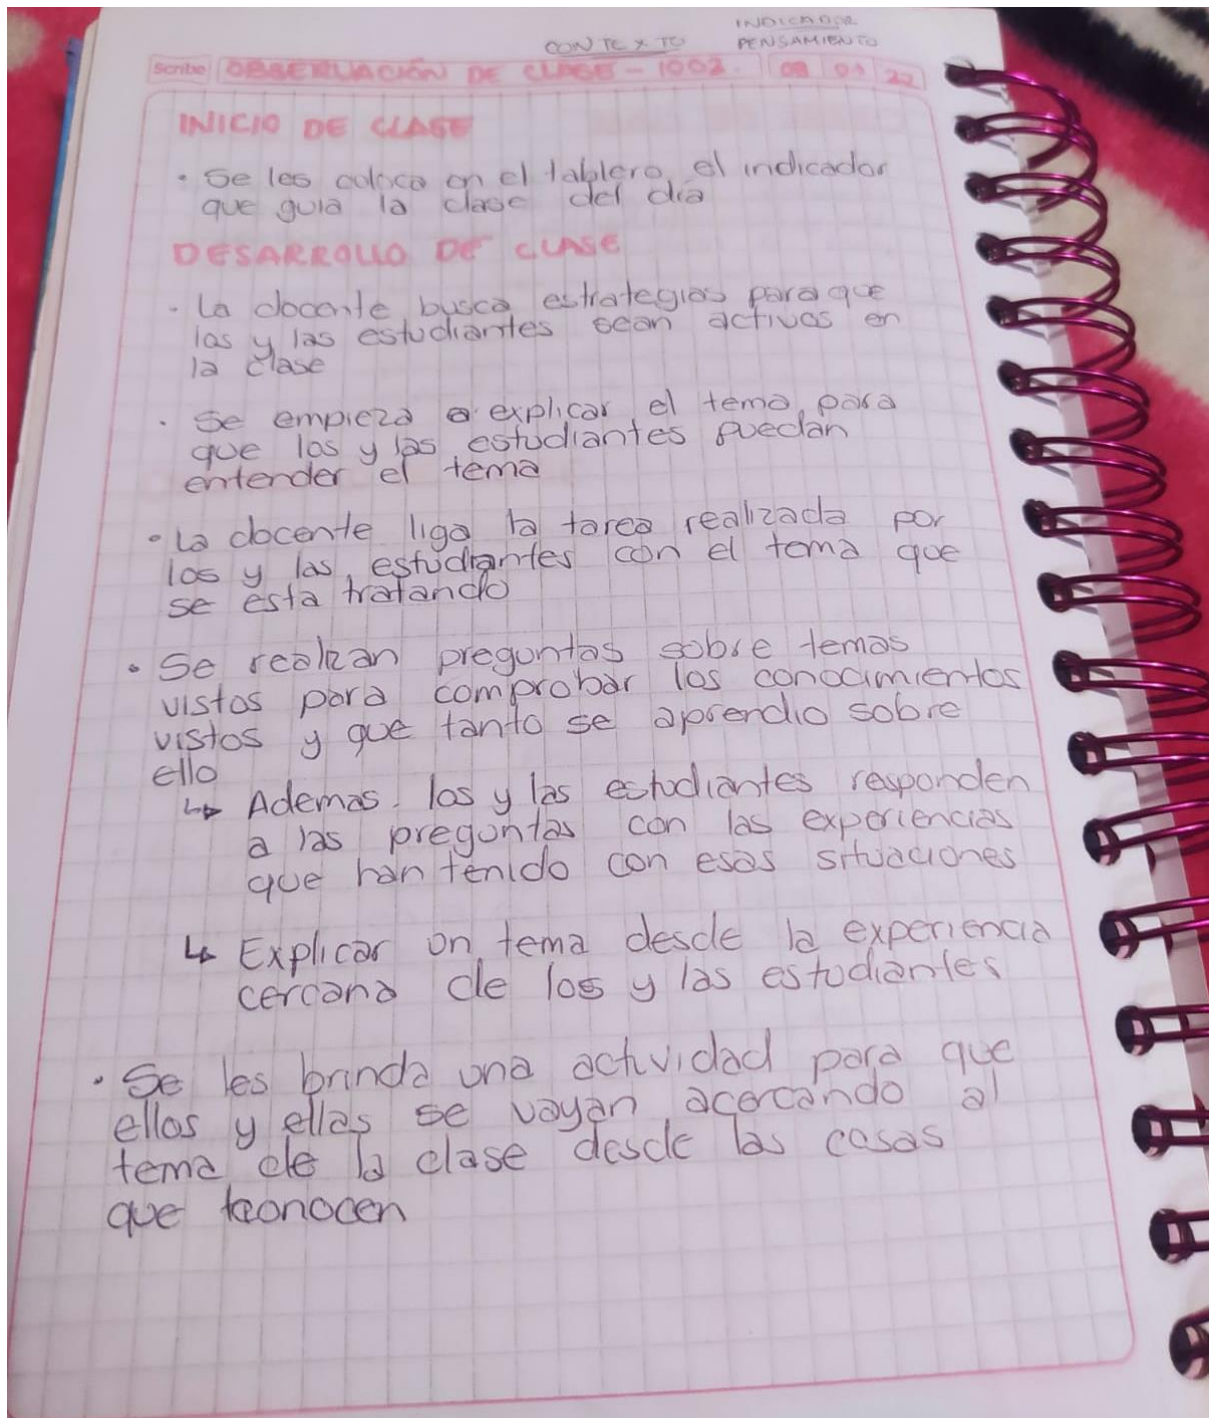 INDICADOR
CONTEXTO PENSAMIENTO
Scribe OBSERVACIÓN DE CLASE - 1002. 22
INICIO DE CLASE
• Se les coloca en el tablero, el indicador
que guia la clase del dia
DESARROLLO DE CLASE
• La docente busca estrategias para que
los y las estudiantes sean activos en
la clase
• Se empieza a explicar el tema para
que los y las estudiantes puedan
entender el tema
• La docente liga la tarea realizada por
los y las estudiantes con el tema que
se esta tratando
• Se realizan preguntas sobre temas
vistos para comprobar los conocimientos
vistos y que tanto se aprendio sobre
ello
↳ Ademas. los y las estudiantes responden
a las preguntas con las experiencias
que han tenido con esas situaciones
↳ Explicar un tema desde la experiencia
cercana de los y las estudiantes
• Se les brinda una actividad para que
ellos y ellas se vayan acercando al
tema de la clase desde las cosas
que conocen